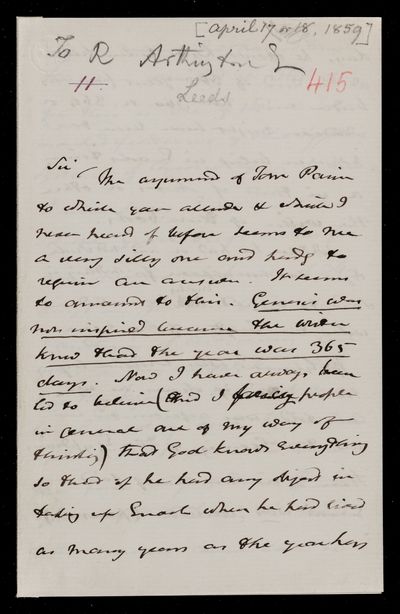 [april 17 or 18, 1859]
To R Arthington E
11
415
Leeds
Sir The argument of Tom Paine
to which you allude & which I
never heard of before seems to me
a very silly one and hardly to
require an answer. It seems
to amount to this. Genesis was
not inspired because the writer
knew that the year was 365
days. Now I have always been
led to believe (and I people
in general are of my way of
thinking) that God knows everything
so that if he had any object in
taking up Enoch when he had lived
as many years as the year has